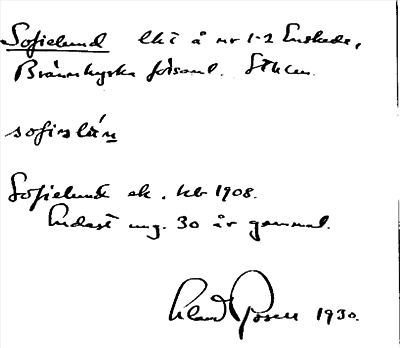 Sofielund lht å nr 1-2 Enskede,
Brännkyrka församl. Sthlm.
sofislún
Sofielund ek. kb 1908.
Endast ung. 30 år gammal.
1930.